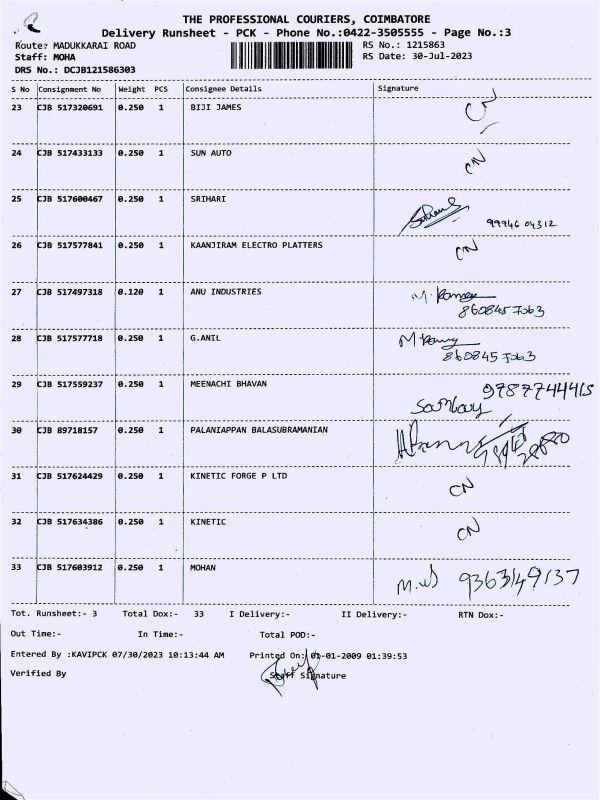 THE PROFESSIONAL COURIERS, COIMBATORE
Delivery Runsheet - PCK - Phone No.:0422-3505555 - Page No.:3
Route: MADUKKARAI ROAD RS No.: 1215863
Staff: MOHA RS Date: 30-Jul-2023
DRS No.: DCJB121586303
S No Consignment No Weight PCS Consignee Details Signature
23 CJB 517320691 0.250 1 BIJI JAMES
24 CJB 517433133 0.250 1 SUN AUTO CN
25 CJB 517600467 0.250 1 SRIHARI
99946 04312
26 CJB 517577841 0.250 1 KAANJIRAM ELECTRO PLATTERS CN
27 CJB 517497318 0.120 1 ANU INDUSTRIES
8608457063
28 CJB 517577718 0.250 1 G.ANIL
8608457063
29 CJB 517559237 0.250 1 MEENACHI BHAVAN 9787744415
30 CJB 89718157 0.250 1 PALANIAPPAN BALASUBRAMANIAN
31 CJB 517624429 0.250 1 KINETIC FORGE P LTD CN
32 CJB 517634386 0.250 1 KINETIC CN
33 CJB 517603912 0.250 1 MOHAN 9363149137
Tot. Runsheet:- 3 Total Dox:- 33 I Delivery:- II Delivery:- RTN Dox:-
Out Time:- In Time:- Total POD:-
Entered By :KAVIPCK 07/30/2023 10:13:44 AM Printed On: 01-01-2009 01:39:53
Verified By Staff Signature